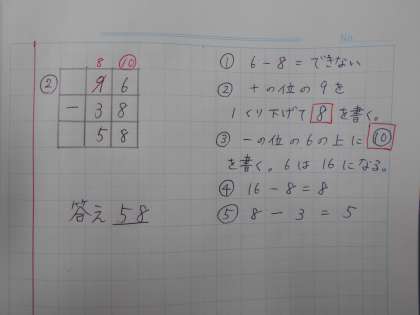 No.
8 ⑩
② 9 6
− 3 8
5 8
答え 58
① 6 − 8 = できない
② 十の位の9を
1くり下げて 8 を書く。
③ 一の位の6の上に ⑩
を書く。6は16になる。
④ 16 − 8 = 8
⑤ 8 − 3 = 5